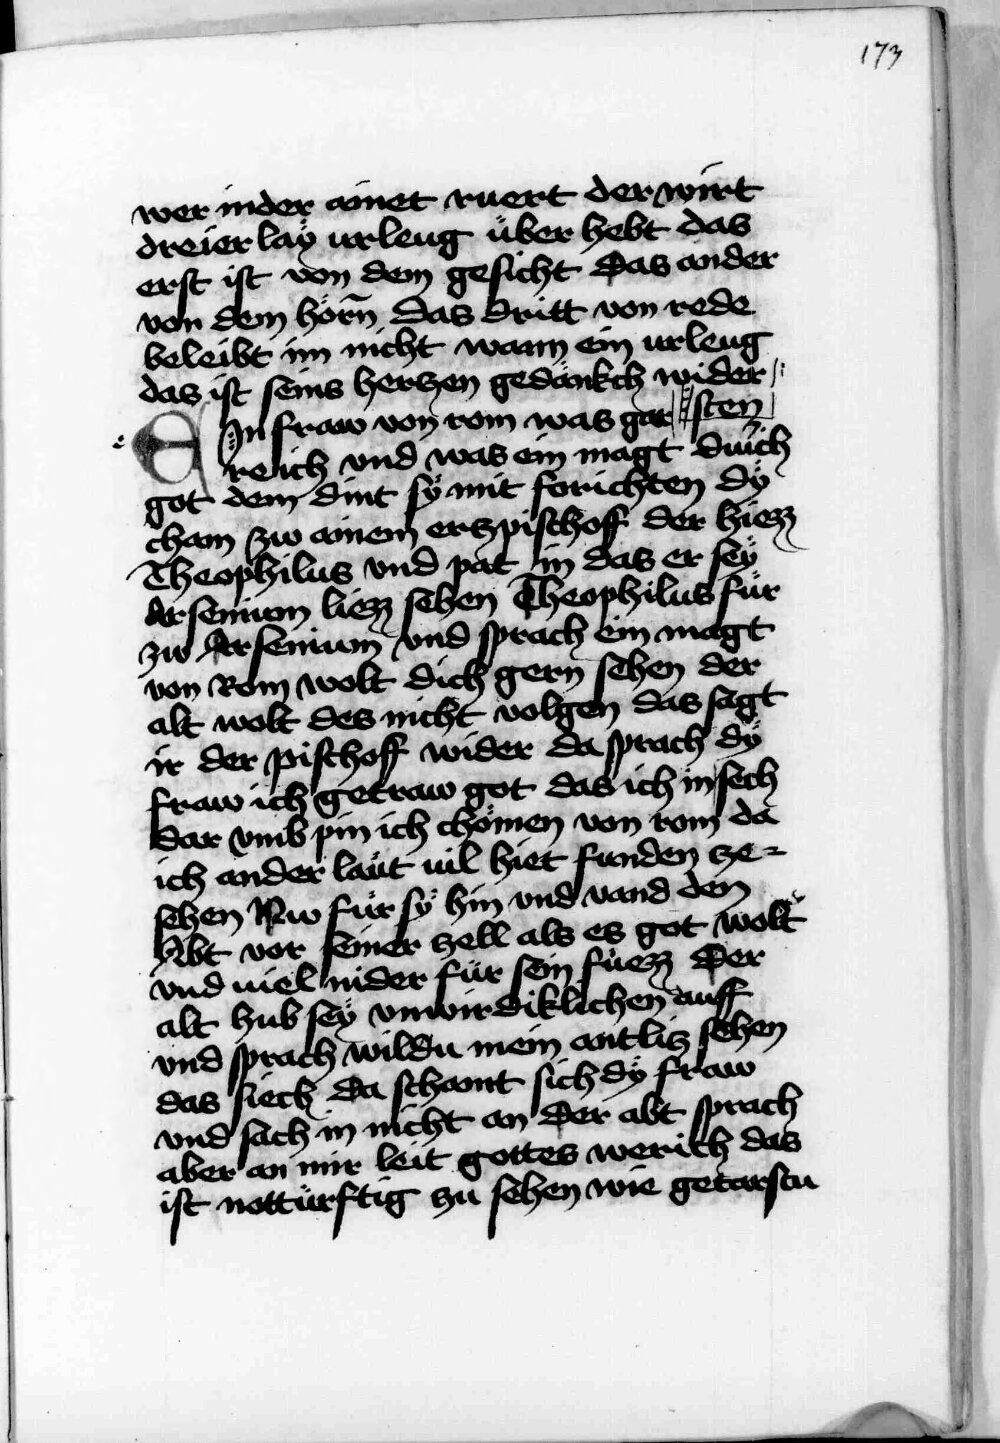 173
wer in der ainet ruert der wirt
dreier laÿ urleug über hebt das
erst ist von dem gesicht Das ander
von dem hörn̄ Das dritt von rede
beleibt im nicht wann ein urleug
das ist seins herczen gedänkch wider
EIn fraw von rom was gar sten
reich vnd was ein magt duich
got dem dint sÿ mit forichten dÿ
cham zw ainem erczpischoff der hiezz
Theophilus vnd pat in das er seÿ
Arsenium liezz sehen Theophilus für
zw Arsenium vnd sprach ein magt
von Rom wolt dich gern sehen der
alt wolt des nicht volgen das sagt
ir der pischoff wider da sprach dÿ
fraw ich getraw got das ich in sech
Dar vmb pin ich chömen von rom da
ich ander laüt uil hiet funden ze=
sehen Nw für sÿ hin vnd vand den
Abt vor seiner zell als es got wolt
vnd uiel nider für sein füezz Der
alt hub seÿ vnwirdiklichen auff
vnd sprach wildu mein antliz sehen
das siech Da schamt sich dÿ fraw
vnd sach in nicht an Der abt sprach
aber an mir leit gottes werich das
ist nottürftig zu sehen wie getarstu